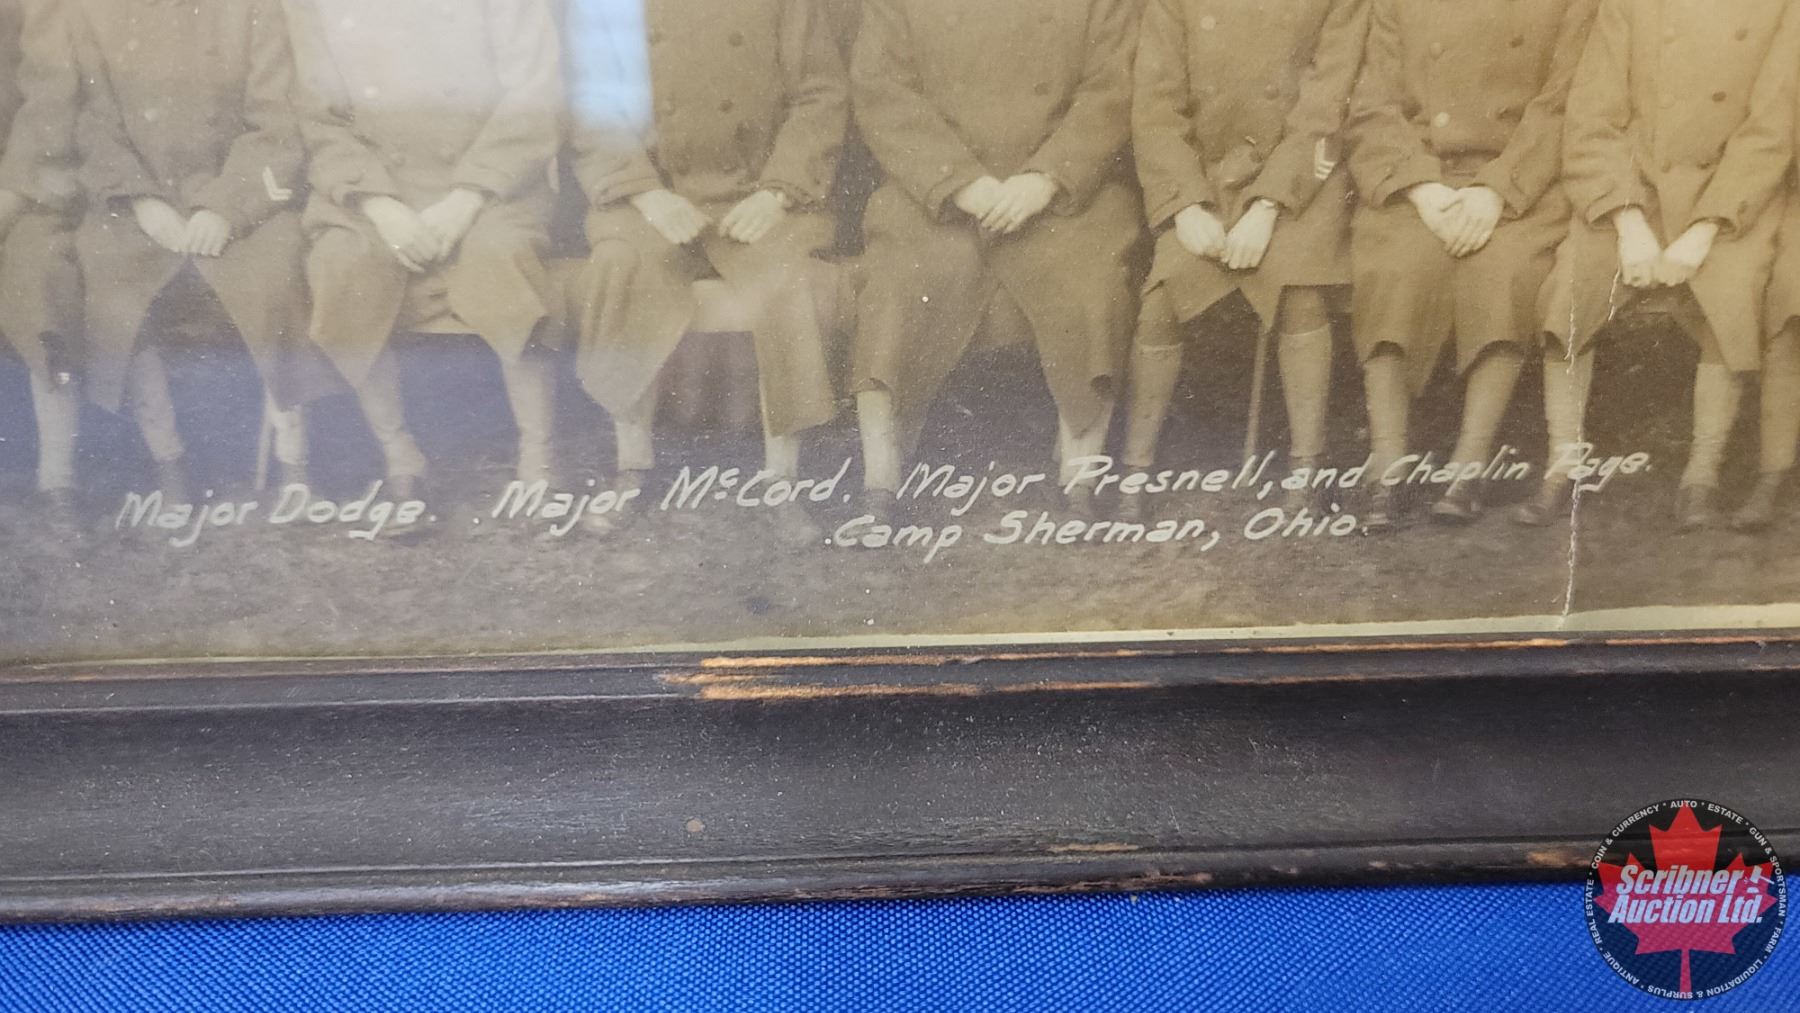 Major Dodge. . Major McCord. Major Presnell, and Chaplin Page.
.Camp Sherman, Ohio.
Scribner
Auction Ltd.
COIN & CURRENCY * AUTO * ESTATE * GUN & SPORTSMAN * FARM * LIQUIDATION & SURPLUS * ANTIQUE * REAL ESTATE *